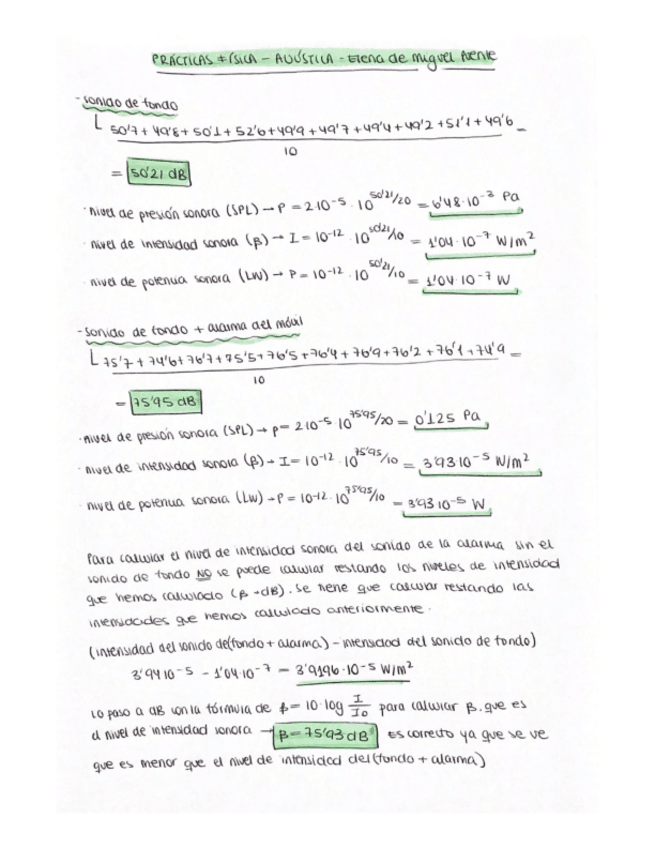 PRÁCTICAS FÍSICA - ACÚSTICA - Elena de Miguel Arente
- Sonido de fondo
50'7 + 49'8 + 50'1 + 52'6 + 49'9 + 49'7 + 49'4 + 49'2 + 51'1 + 49'6 =
10
= 50'21 dB
· nivel de presión sonora (SPL) → P = 2·10⁻⁵ · 10^50'21/20 = 6'48·10⁻³ Pa
· nivel de intensidad sonora (β) → I = 10⁻¹² · 10^50'21/10 = 1'04·10⁻⁷ W/m²
· nivel de potencia sonora (LW) → P = 10⁻¹² · 10^50'21/10 = 1'04·10⁻⁷ W
- Sonido de fondo + alarma del móvil
75'7 + 74'6 + 76'7 + 75'5 + 76'5 + 76'4 + 76'9 + 76'2 + 76'1 + 74'9 =
10
= 75'95 dB
· nivel de presión sonora (SPL) → p = 2·10⁻⁵ 10^75'95/20 = 0'125 Pa
· nivel de intensidad sonora (β) → I = 10⁻¹² · 10^75'95/10 = 3'93·10⁻⁵ W/m²
· nivel de potencia sonora (LW) → P = 10⁻¹² · 10^75'95/10 = 3'93·10⁻⁵ W
Para calcular el nivel de intensidad sonora del sonido de la alarma sin el
sonido de fondo NO se puede calcular restando los niveles de intensidad
que hemos calculado (β → dB). Se tiene que calcular restando las
intensidades que hemos calculado anteriormente.
(intensidad del sonido de (fondo + alarma) - intensidad del sonido de fondo)
3'94·10⁻⁵ - 1'04·10⁻⁷ = 3'9196·10⁻⁵ W/m²
Lo paso a dB con la fórmula de β = 10·log I/I₀ para calcular β, que es
el nivel de intensidad sonora → β = 75'93 dB Es correcto ya que se ve
que es menor que el nivel de intensidad del (fondo + alarma)